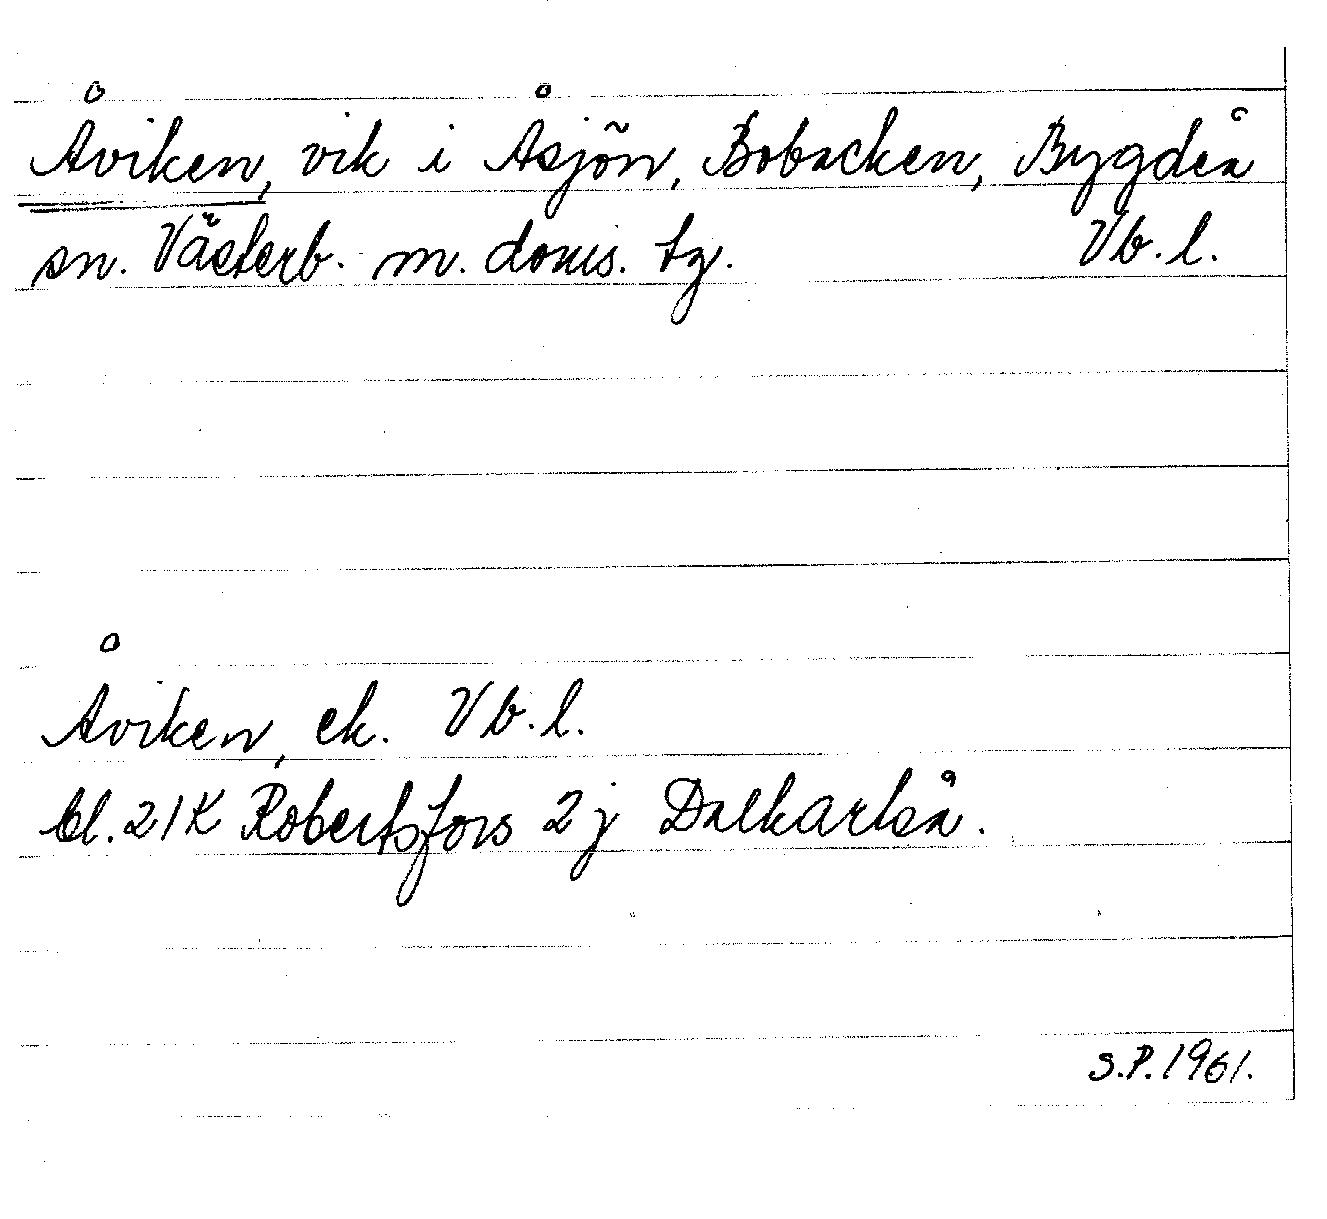 Åviken, vik i Åsjön, Bobacken, Bygdeå
sn. Västerb. m. doms. tg. Vb. l.
Åviken, ek. Vb. l.
bl. 21K Robertsfors 2j Dalkarlså.
S.P. 1961.